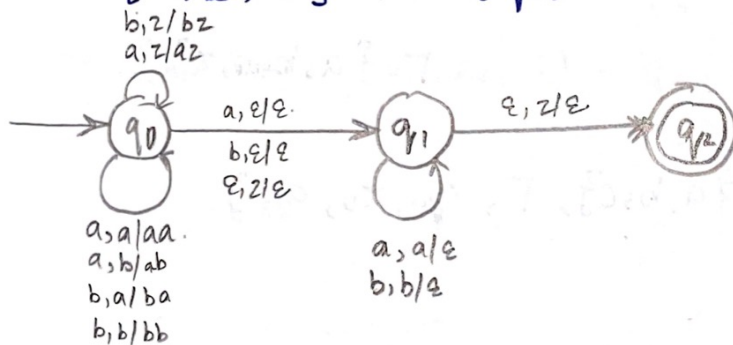 b, z/bz
a, z/az
q0
a, ε/ε.
b, ε/ε
ε, z/ε
q1
ε, z/ε
q2
a, a/aa.
a, b/ab
b, a/ba
b, b/bb
a, a/ε
b, b/ε